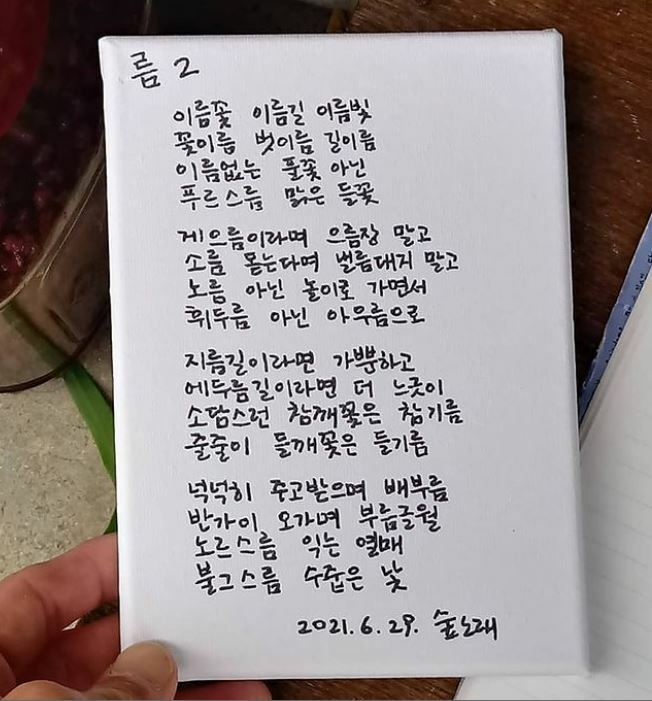 름 2
이름꽃 이름길 이름빛
꽃이름 벗이름 길이름
이름없는 풀꽃 아닌
푸르스름 맑은 들꽃
게으름이라며 으름장 말고
소름 돋는다며 벌름대지 말고
노름 아닌 놀이로 가면서
휘두름 아닌 아우름으로
지름길이라면 가뿐하고
에두름길이라면 더 느긋이
소담스런 참깨꽃은 참기름
줄줄이 들깨꽃은 들기름
넉넉히 주고받으며 배부름
반가이 오가며 부름글월
노르스름 익는 열매
불그스름 수줍은 낯
2021.6.29. 숲노래